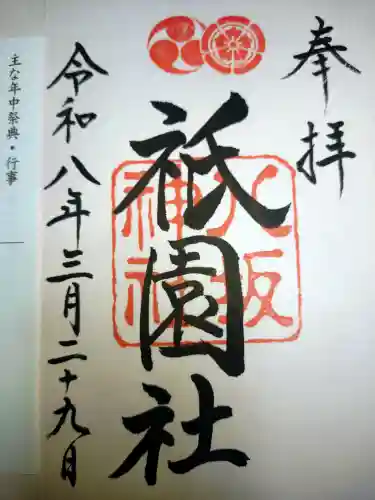 奉拝
八坂
神社
祇園社
令和八年三月二十九日
主な年中祭典・行事